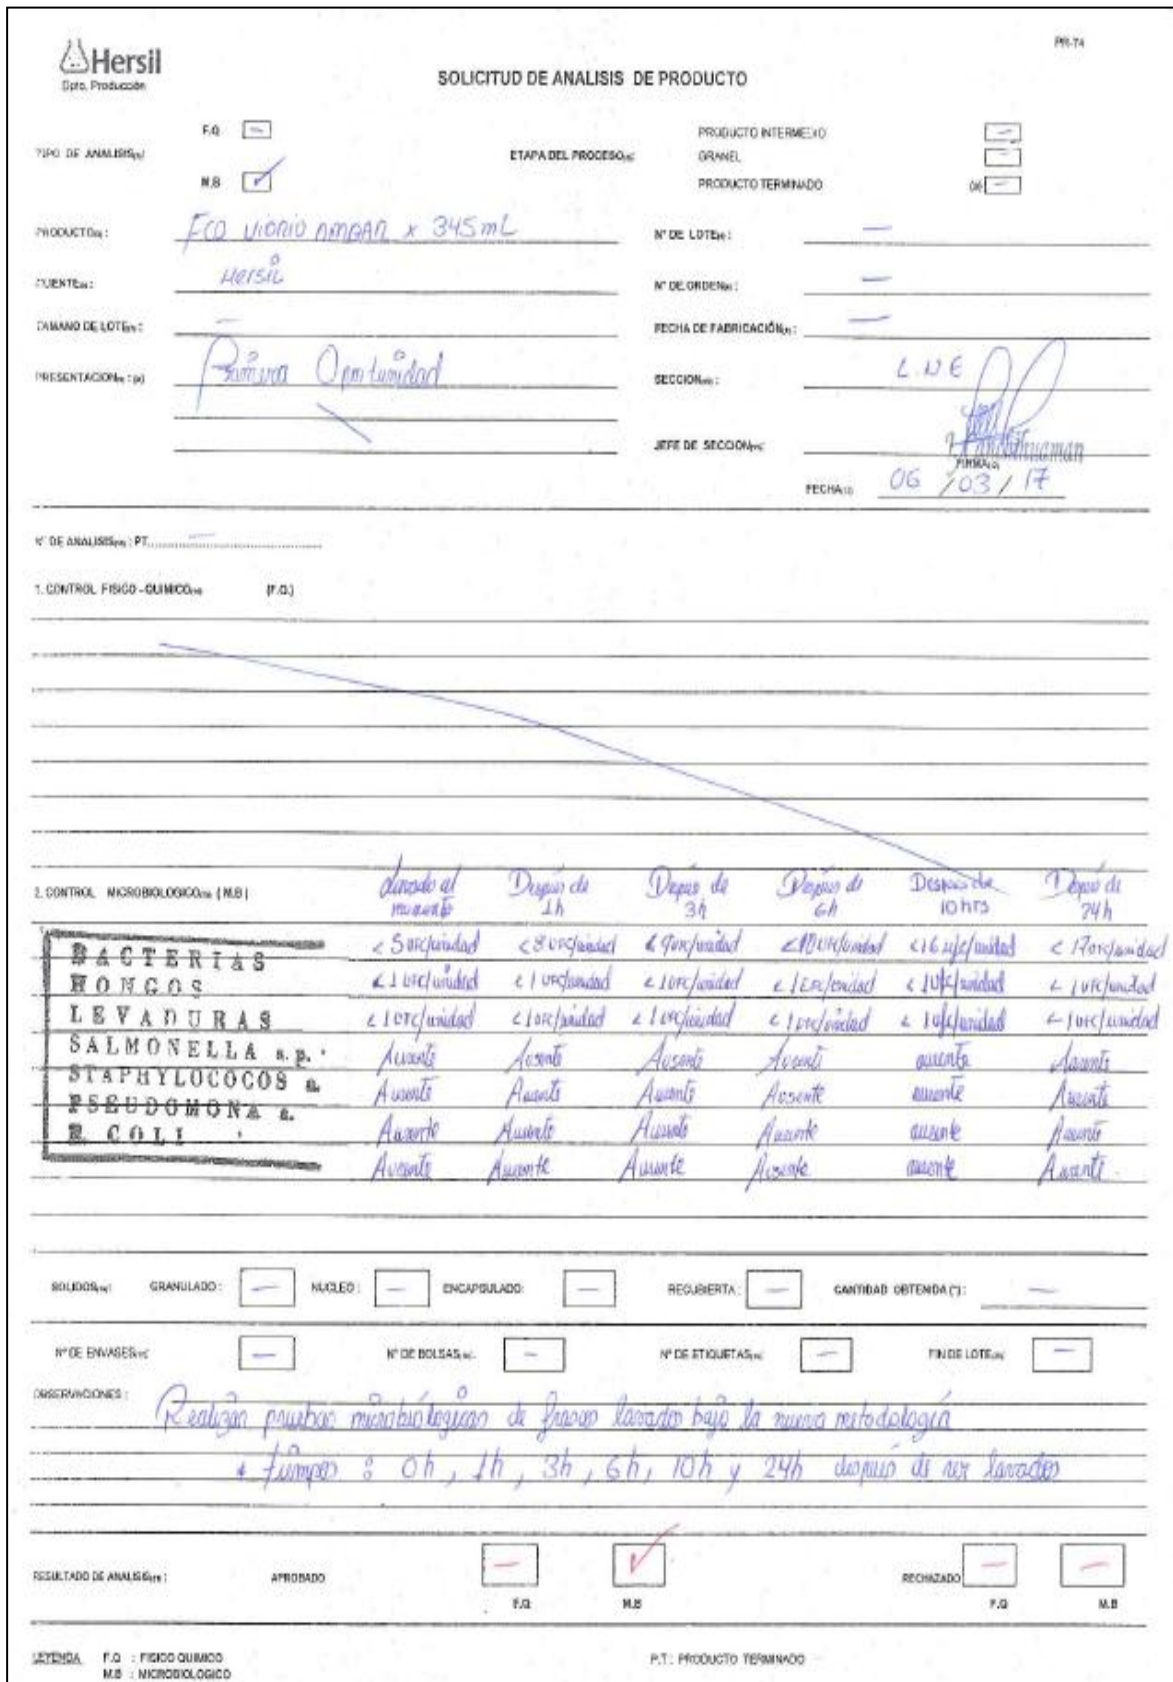 Hersil
Dpto. Producción
PR-74
SOLICITUD DE ANALISIS DE PRODUCTO
TIPO DE ANALISIS
F.Q
M.B
ETAPA DEL PROCESO
PRODUCTO INTERMEDIO
GRANEL
PRODUCTO TERMINADO
PRODUCTO : FCO VIDRIO AMBAR x 345 mL
N° DE LOTE : —
CLIENTE : Hersil
N° DE ORDEN : —
TAMAÑO DE LOTE : —
FECHA DE FABRICACIÓN : —
PRESENTACION : Primera Oportunidad
SECCION : L.N.E
JEFE DE SECCION
FIRMA
FECHA 06 / 03 / 17
N° DE ANALISIS : PT. —
1. CONTROL FISICO - QUIMICO (F.Q.)
2. CONTROL MICROBIOLOGICO ( M.B )
Lavado al momento Después de 1h Después de 3h Después de 6h Después de 10 hrs Después de 24h
BACTERIAS < 5 UFC/unidad < 8 UFC/unidad < 9 UFC/unidad < 10 UFC/unidad < 16 ufc/unidad < 17 UFC/unidad
HONGOS < 1 UFC/unidad < 1 UFC/unidad < 1 UFC/unidad < 1 UFC/unidad < 1 Ufc/unidad < 1 UFC/unidad
LEVADURAS < 1 UFC/unidad < 1 UFC/unidad < 1 UFC/unidad < 1 UFC/unidad < 1 Ufc/unidad < 1 UFC/unidad
SALMONELLA s.p. Ausente Ausente Ausente Ausente ausente Ausente
STAPHYLOCOCOS a. Ausente Ausente Ausente Ausente ausente Ausente
PSEUDOMONA a. Ausente Ausente Ausente Ausente ausente Ausente
E. COLI Ausente Ausente Ausente Ausente ausente Ausente
SOLIDOS : GRANULADO : — NUCLEO : — ENCAPSULADO: — RECUBIERTA : — CANTIDAD OBTENIDA (*) : —
N° DE ENVASES — N° DE BOLSAS — N° DE ETIQUETAS — FIN DE LOTE —
OBSERVACIONES : Realizar pruebas microbiológicas de frascos lavados bajo la nueva metodología
* tiempos : 0h, 1h, 3h, 6h, 10h y 24h después de ser lavados
RESULTADO DE ANALISIS : APROBADO RECHAZADO
F.Q M.B F.Q M.B
LEYENDA F.Q : FISICO QUIMICO P.T : PRODUCTO TERMINADO
M.B : MICROBIOLOGICO